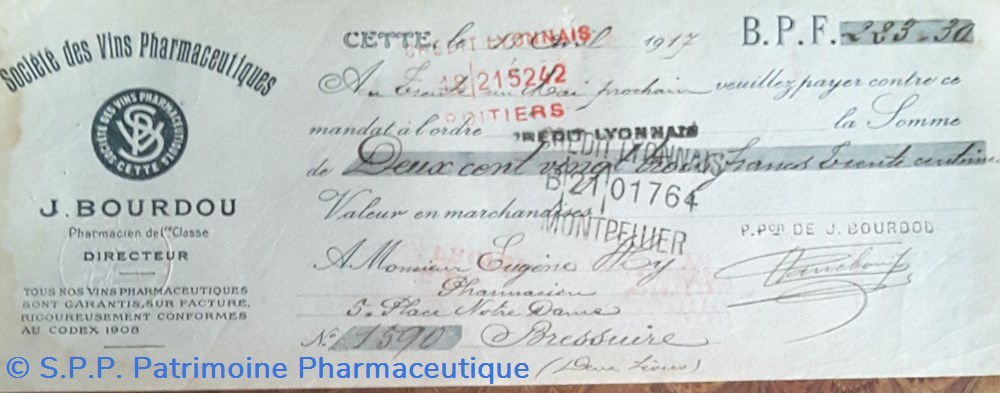 Société des Vins Pharmaceutiques
SOCIÉTÉ DES VINS PHARMACEUTIQUES
CETTE
J. BOURDOU
Pharmacien de 1ère Classe
DIRECTEUR
TOUS NOS VINS PHARMACEUTIQUES
SONT GARANTIS, SUR FACTURE,
RIGOUREUSEMENT CONFORMES
AU CODEX 1908
CETTE, le 1917
B. P. F. 223.30
CREDIT LYONNAIS
18 215242
POITIERS
Au Trente un Mai prochain veuillez payer contre ce
mandat à l'ordre CREDIT LYONNAIS la Somme
de Deux cent vingt trois Francs Trente centimes
CREDIT LYONNAIS
B 21 01764
MONTPELLIER
Valeur en marchandises
P. Pon DE J. BOURDOU
A Monsieur Eugène
Pharmacien
5 Place Notre Dame
No 1590 Bressuire
(Deux Sèvres)
© S.P.P. Patrimoine Pharmaceutique